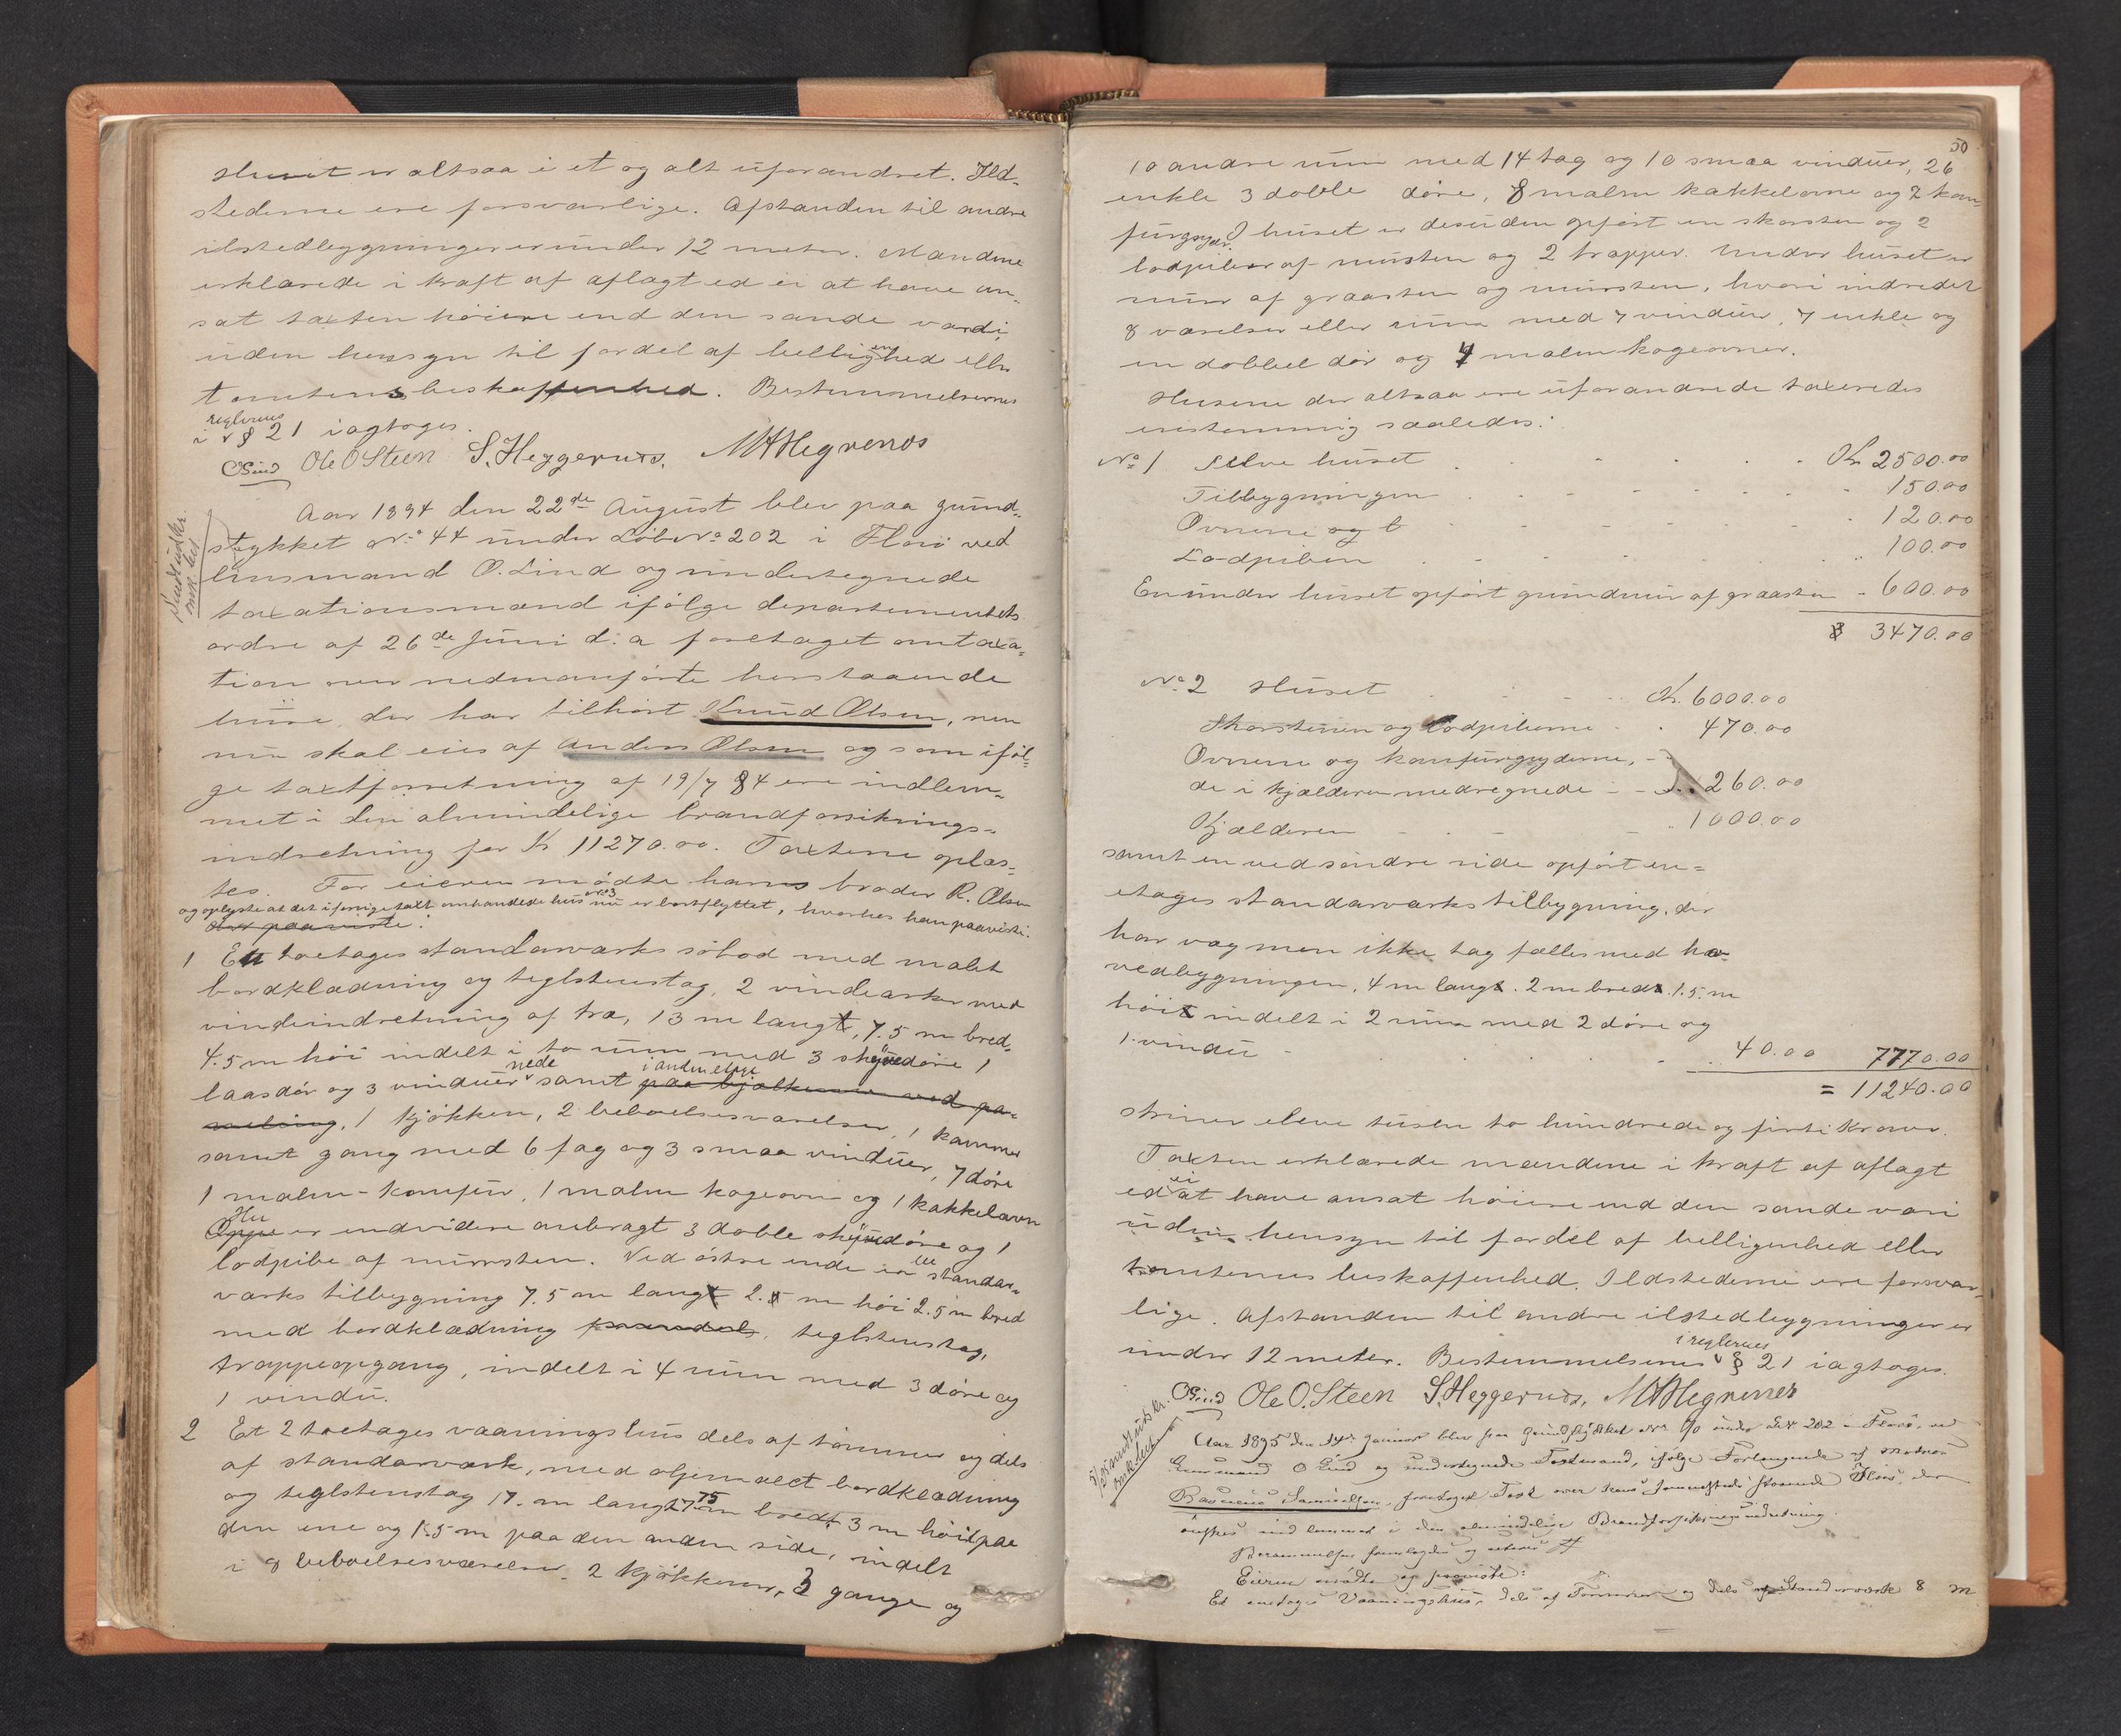 Huset er altsaa i et og alt uforandret. Ild-
stederne ere forsvarlige. Afstanden til andre
ilstedbygninger er under 12 meter. Mændene
erklærede i kraft af aflagt ed ei at have an-
sat taxten høiere end den sande værdi,
uden hensyn til fordel af belligenhed eller
tomtens beskaffenhed. Bestemmelsernes
i reglernes § 21 iagtoges.
OLind Ole O Steen S. Heggernæs. M A Hegrenes
Aar 1894 den 22de August blev paa grund-
stykket No 44 under Løbe No 202 i Florø ved
lensmand O. Lind og undertegnede
taxationsmænd ifølge departementets
ordre af 26de Juni d. a foretaget omtaxa-
tion over nedenanførte herstaaende
huse, der har tilhørt Knud Olsen, men
nu skal eies af Anders Olsen og som iføl-
ge taxtforretning af 19/7 84 ere indlem-
met i den almindelige brandforsikrings-
indretning for Kr 11270.00. Taxterne oplæs-
tes. For eieren mødte hans broder R. Olsen
og oplyste at det i forrige taxt omhandlede hus No 3 nu er bortflyttet, hvorhos han paaviste.
der paaviste:
1 Et toetages standarværks søbod med malet
bordklædning og teglstenstag, 2 vindearker med
vindeindretning af træ, 13 m langt, 7.5 m bred,
4.5 m høi indelt i to rum med 3 skyvedøre 1
laasdør og 3 vinduer nede samt i anden etage paa bjelkerne ved pa-
neling, 1 kjøkken, 2 beboelsesværelser, 1 kammer
samt gang med 6 fag og 3 smaa vinduer, 7 døre
1 malm-komfur, 1 malm kogeovn og 1 kakkelovn
Oppe Her er endvidere anbragt 3 doble skyvedøre og 1
lodpibe af mursten. Ved østre ende er en standar-
værks tilbygning 7.5 m langt 2.5 m høi 2.5 m bred
med bordklædning teglstenstag,
trappeopgang, indelt i 4 rum med 3 døre og
1 vindu.
2 Et 2 toetages vaaningshus dels af tømmer og dels
af standarværk, med oljemalet bordklædning
og teglstenstag 17. m langt 7.75 m bredt 3 m høit paa
den ene og 1.5 m paa den anden side, indelt
i 8 beboelsesværelser. 2 kjøkkener, 3 gange og
50
10 andre rum med 14 fag og 10 smaa vinduer, 26
enkle 3 doble døre, 8 malm kakkelovne og 2 kom-
furgryder. I huset er desuden opført en skorsten og 2
lodpiber af mursten og 2 trapper. Under huset er
mur af graasten og mursten, hvori indredet
8 værelser eller rum med 7 vinduer, 7 enkle og
en dobbel dør og 4 malm kogeovner.
Husene der altsaa ere uforandrede taxeredes
enstemmig saaledes:
No 1 Selve huset Kr 2500.00
Tilbygningen 150.00
Ovnene og l 120.00
Lodpiben 100.00
En under huset opført grundmur af graasten - 600.00
3470.00
No 2 Huset Kr. 6000.00
Skorstenen og Lodpiberne 470.00
Ovnene og komfurgryderne,
de i kjælderen medregnede - 260.00
Kjælderen 1000.00
samt en ved søndre side opført en-
etages standarværks tilbygning, der
har væg men ikke tag fælles med ho-
vedbygningen, 4 m langt. 2 m bredt. 1.5. m
høit indelt i 2 rum med 2 døre og
1 vindu 40.00 7770.00
= 11240.00
skriver eleve tusen to hundrede og firti kroner.
Taxten erklærede mændene i kraft af aflagt
ed ei at have ansat høiere end den sande væri
uden hensyn til fordel af belligenhed eller
tomternes beskaffenhed. Ildstederne ere forsvar-
lige. Afstanden til andre ilstedbygninger er
under 12 meter. Bestemmelserne i reglernes § 21 iagtoges.
OLind Ole O. Steen S. Heggernæs, M A Hegrenes
Aar 1895 den 14de Januar blev paa Grundstykket No 90 under L. No 202 i Florø, ved
Lensmand O Lind og undertegnede Taxtmænd, ifølge Forlangende af
Rasmus Samuelsen, foretaget Taxt over hans sammesteds staaende Huus, der
ønskes indlemmet i den almindelige Brandforsikringsindretning.
Eieren mødte og paaviste:
Et enetages Vaaningshus, dels af Tømmer og dels af Standerværk 8 m